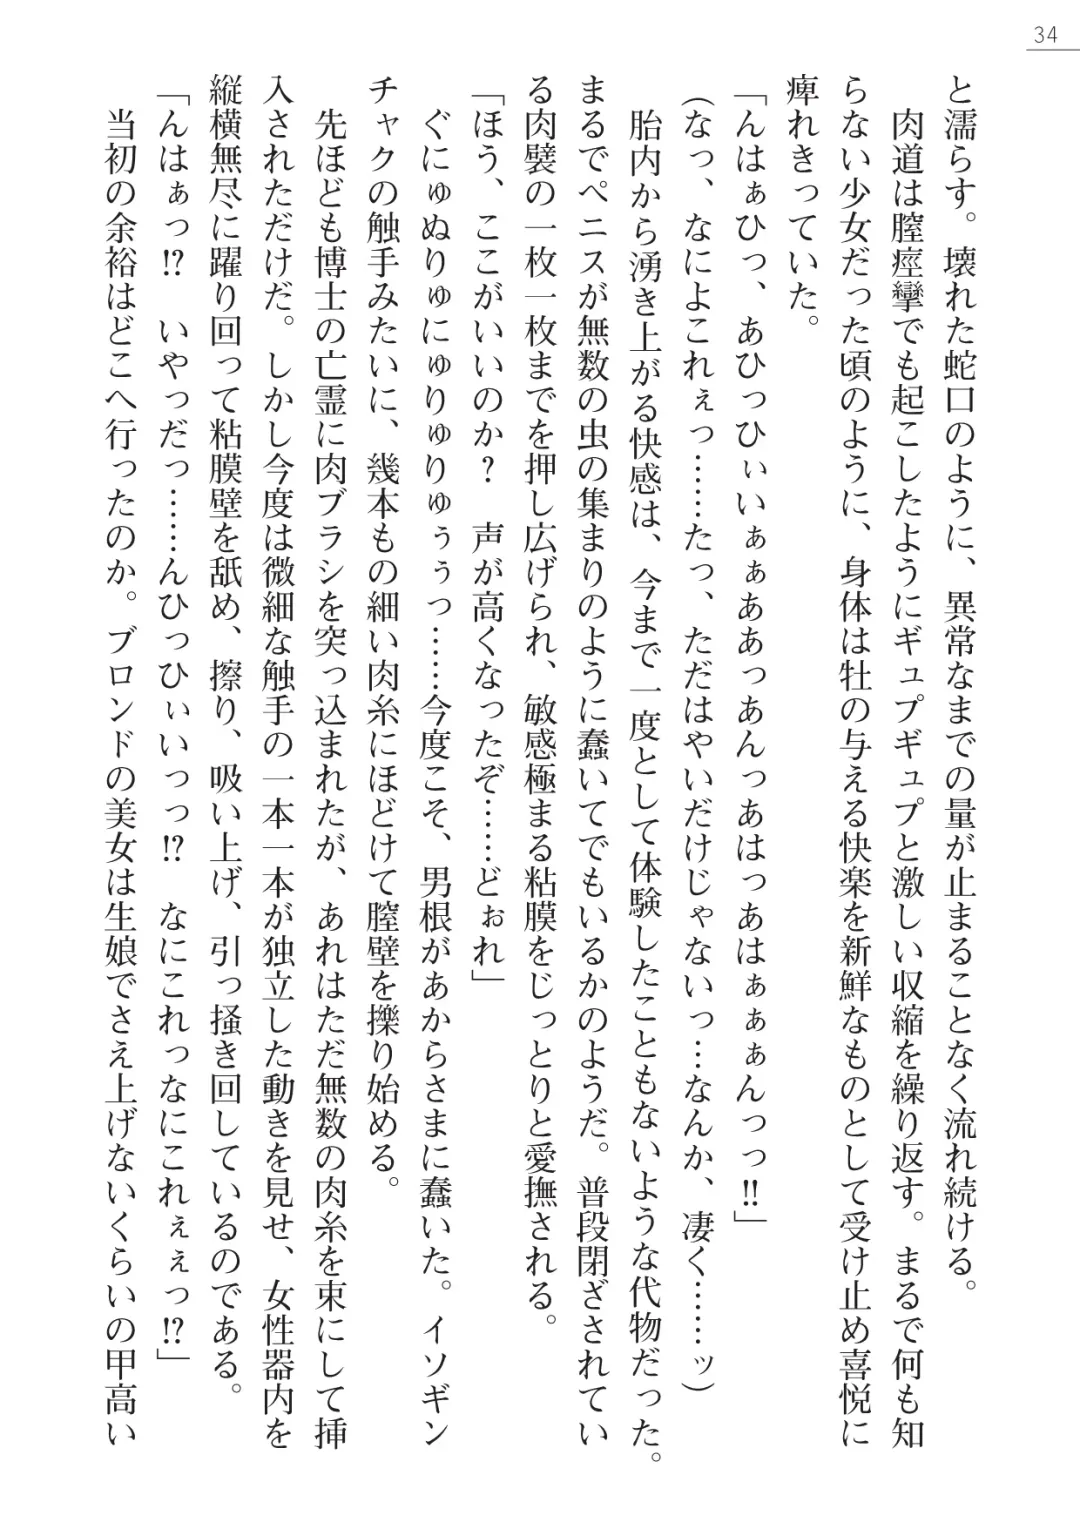 34
と濡らす。壊れた蛇口のように、異常なまでの量が止まることなく流れ続ける。
肉道は膣痙攣でも起こしたようにギュプギュプと激しい収縮を繰り返す。まるで何も知
らない少女だった頃のように、身体は牡の与える快楽を新鮮なものとして受け止め喜悦に
痺れきっていた。
「んはぁひっ、あひっひぃいぁぁああっあんっあはっあはぁぁぁんっっ!!」
(なっ、なによこれぇっ……たっ、ただはやいだけじゃないっ…なんか、凄く……ッ)
胎内から湧き上がる快感は、今まで一度として体験したこともないような代物だった。
まるでペニスが無数の虫の集まりのように蠢いてでもいるかのようだ。普段閉ざされてい
る肉襞の一枚一枚までを押し広げられ、敏感極まる粘膜をじっとりと愛撫される。
「ほう、ここがいいのか? 声が高くなったぞ……どぉれ」
ぐにゅぬりゅにゅりゅりゅぅぅっ……今度こそ、男根があからさまに蠢いた。イソギン
チャクの触手みたいに、幾本もの細い肉糸にほどけて膣壁を擽り始める。
先ほども博士の亡霊に肉ブラシを突っ込まれたが、あれはただ無数の肉糸を束にして挿
入されただけだ。しかし今度は微細な触手の一本一本が独立した動きを見せ、女性器内を
縦横無尽に躍り回って粘膜壁を舐め、擦り、吸い上げ、引っ掻き回しているのである。
「んはぁっ!? いやっだっ……んひっひぃいっっ!? なにこれっなにこれぇぇっ!?」
当初の余裕はどこへ行ったのか。ブロンドの美女は生娘でさえ上げないくらいの甲高い